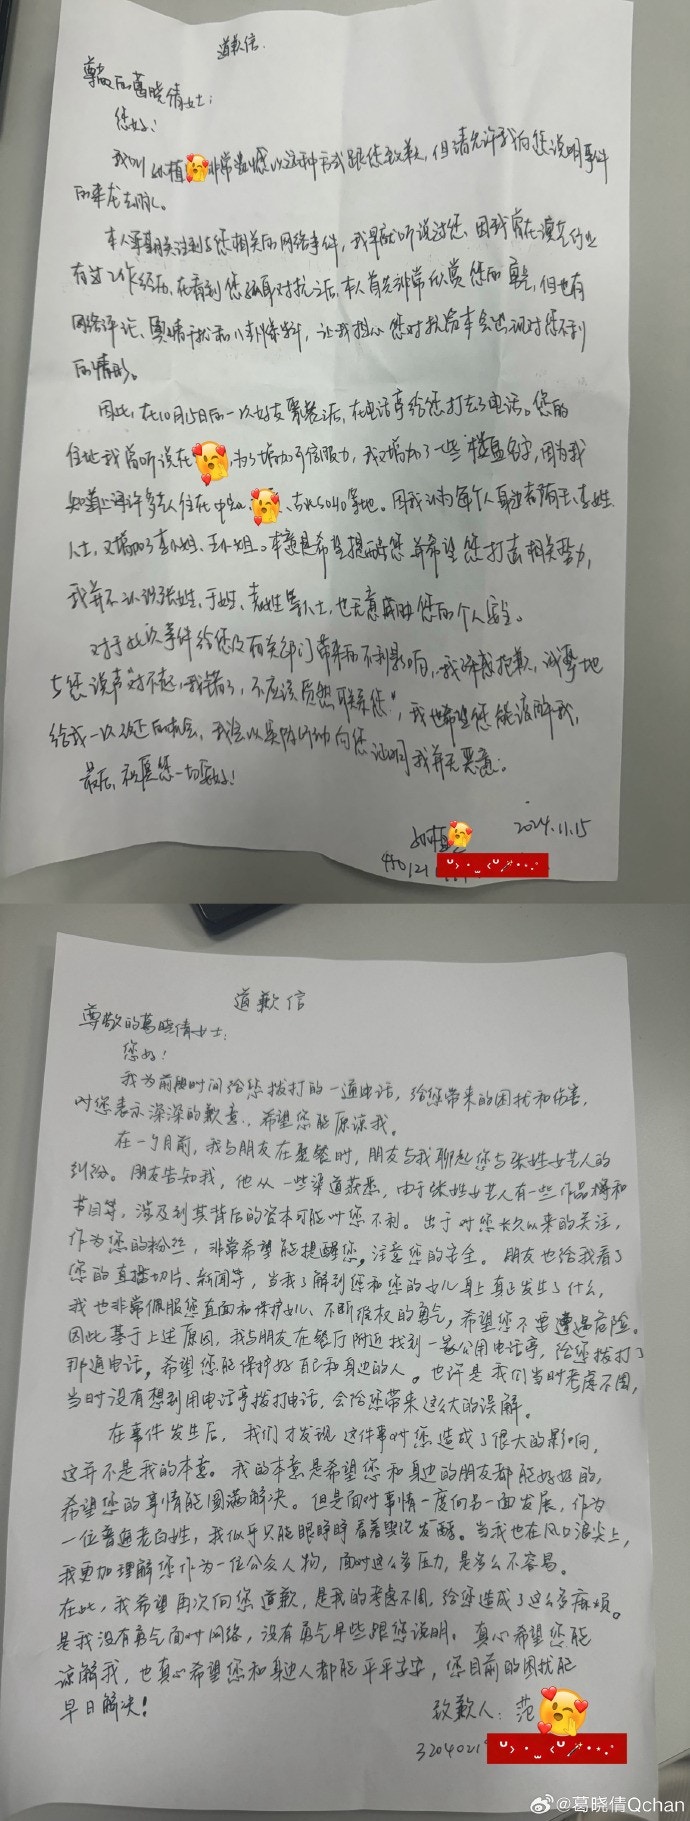 道歉信
尊敬的葛晓倩女士:
您好!
我叫 非常遗憾以这种方式跟您致歉,但请允许我向您说明事件
的来龙去脉。
本人早期关注到与您相关的网络事件,我早就听说过您、因我曾在演艺行业
有过工作经历,在看到您孤身对抗之后,本人首先非常欣赏您的勇气,但也有
网络评论、舆情干扰和八卦爆料,让我担心您对抗资本会出现对您不利
的情形。
因此,在10月15日的一次好友聚餐之后,在电话亭给您打去了电话。您的
住址我曾听说在 ,为了增加可信服力,我又增加了一些"楼盘名字,因为我
知道上海许多艺人住在中 、 、古北SOHO等地。因我认为每个人身边都有王、李姓
人士,又增加了李小姐、王小姐。本意是希望提醒您并希望您打击相关势力,
我并不认识张姓、于姓、袁姓等人士,也无意威胁您的个人安全。
对于此次事件给您及有关部门带来的不利影响,我深感抱歉,诚挚地
与您说声"对不起,我错了,不应该贸然联系您",我也希望您能谅解我,
给我一次改正的机会,我会以实际行动向您证明我并无恶意。
最后,祝愿您一切安好!
2024.11.15
450121
道歉信
尊敬的葛晓倩女士:
您好!
我为前段时间给您拨打的一通电话,给您带来的困扰和伤害,
对您表示深深的歉意,希望您能原谅我。
在一个月前,我与朋友在聚餐时,朋友与我聊起您与张姓女艺人的
纠纷。朋友告知我,他从一些渠道获悉,由于张姓女艺人有一些作品播和
节目等,涉及到其背后的资本可能对您不利。出于对您长久以来的关注,
作为您的粉丝,非常希望能提醒您,注意您的安全。朋友也给我看了
您的直播切片、新闻等,当我了解到您和您的女儿身上真正发生了什么,
我也非常佩服您直面和保护女儿、不断维权的勇气,希望您不要遭遇危险。
因此基于上述原因,我与朋友在餐厅附近找到一家公用电话亭,给您拨打了
那通电话,希望您能保护好自己和身边的人。也许是我们当时考虑不周,
当时没有想到用电话亭拨打电话,会给您带来这么大的误解。
在事件发生后,我们才发现这件事对您造成了很大的影响,
这并不是我的本意。我的本意是希望您和身边的朋友都能好好的,
希望您的事情能圆满解决。但是面对事情一度向另一面发展,作为
一位普通老百姓,我似乎只能眼睁睁看着舆论发酵。当我也在风口浪尖上,
我更加理解您作为一位公众人物,面对这么多压力,是多么不容易。
在此,我希望再次向您道歉,是我的考虑不周,给您造成了这么多麻烦。
是我没有勇气面对网络,没有勇气早些跟您说明。真心希望您能
谅解我,也真心希望您和身边人都能平平安安,您目前的困扰能
早日解决!
致歉人:范
3204021
@葛晓倩Qchan